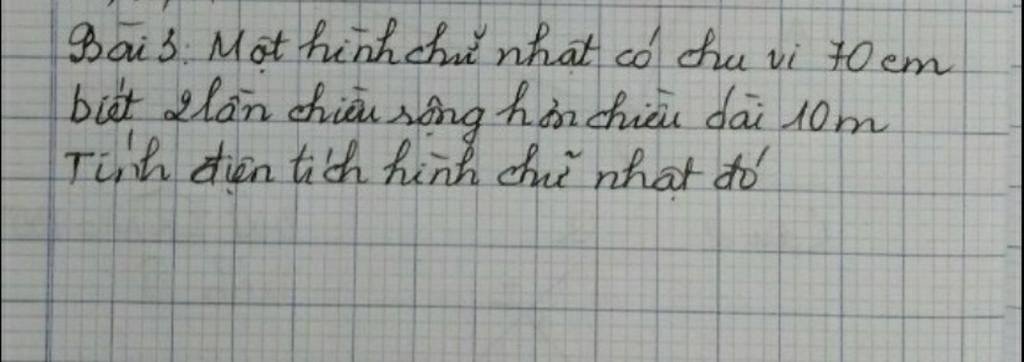 Bài 3: Một hình chữ nhật có chu vi 70 cm
biết 2 lần chiều rộng hơn chiều dài 10m
Tính diện tích hình chữ nhật đó